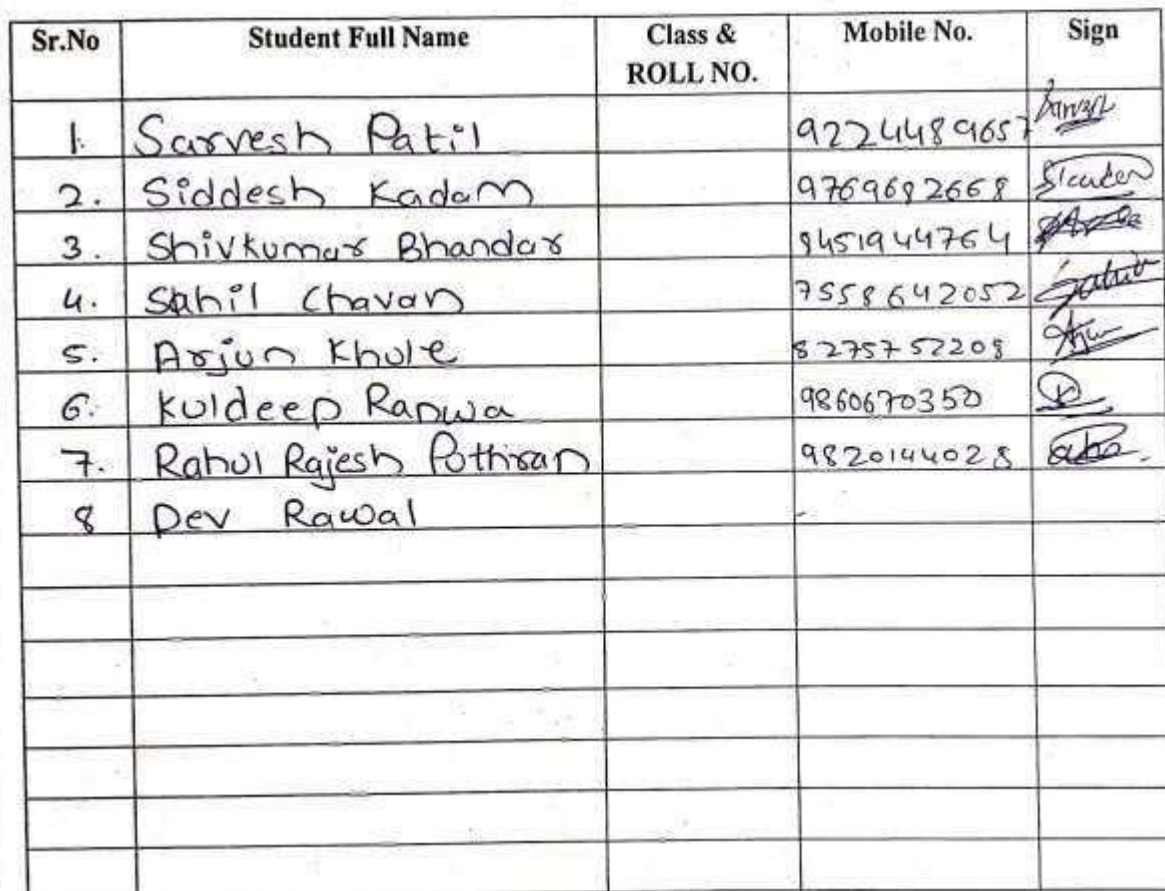 Sr.No Student Full Name Class & ROLL NO. Mobile No. Sign
1. Sarvesh Patil 9224489657
2. Siddesh Kadam 9769682668
3. Shivkumar Bhandar 8451944764
4. Sahil Chavan 7558642052
5. Arjun Khule 8275752208
6. Kuldeep Ranwa 9860670350
7. Rahul Rajesh Puthiran 9820144028
8 Dev Rawal